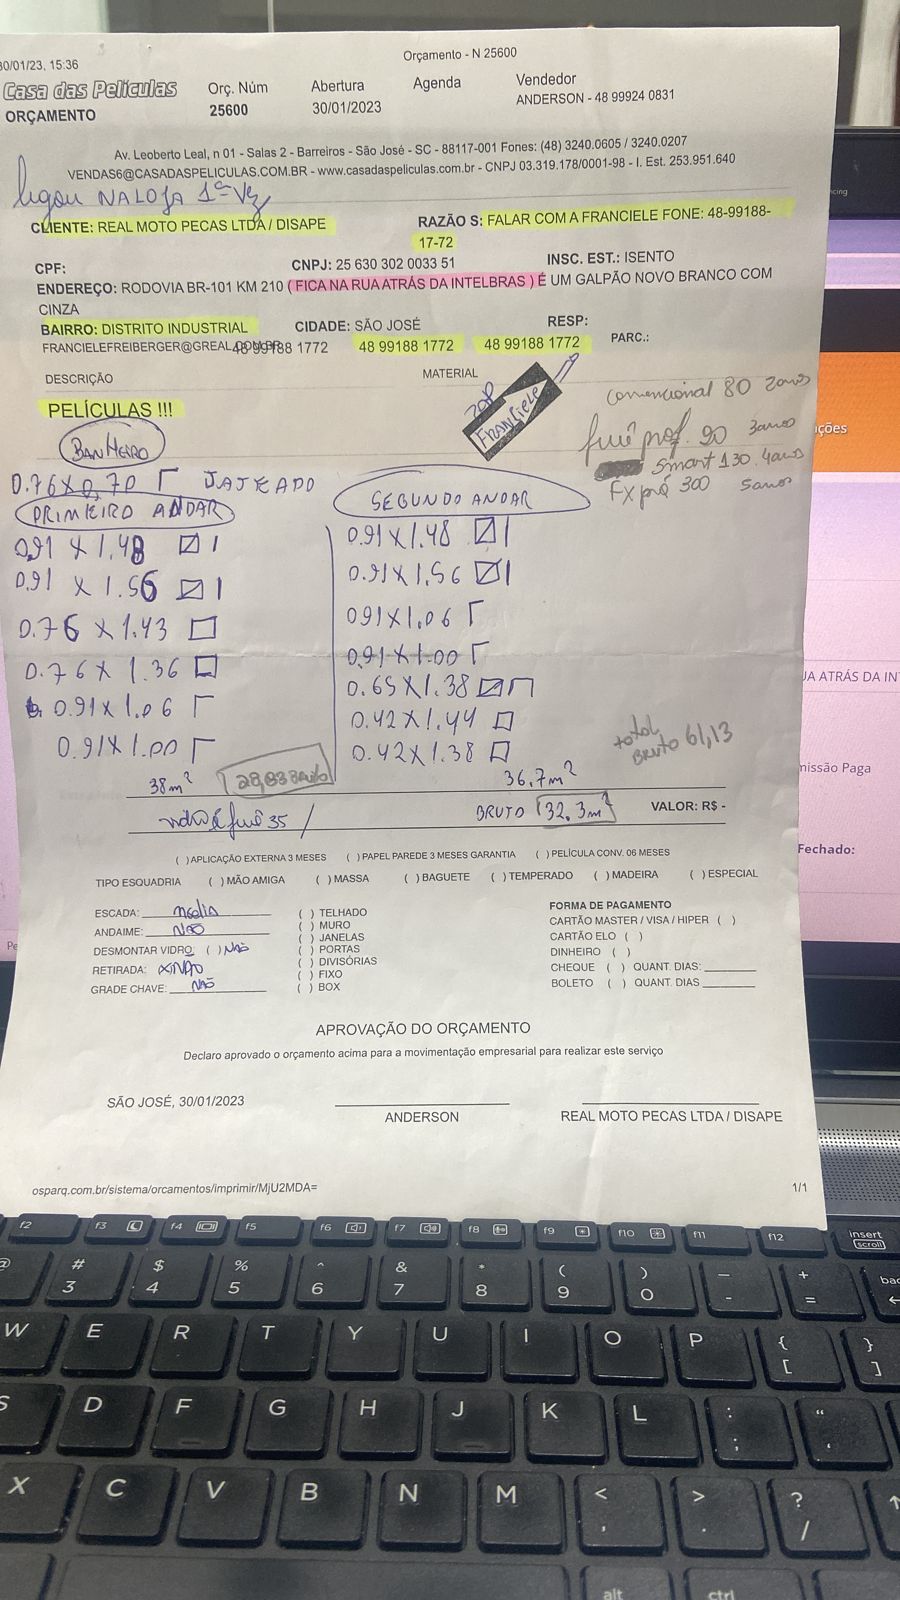 30/01/23, 15:36
Orçamento - N 25600
Casa das Películas
ORÇAMENTO
Orç. Núm
25600
Abertura
30/01/2023
Agenda
Vendedor
ANDERSON - 48 99924 0831
Av. Leoberto Leal, n 01 - Salas 2 - Barreiros - São José - SC - 88117-001 Fones: (48) 3240.0605 / 3240.0207
VENDAS6@CASADASPELICULAS.COM.BR - www.casadaspeliculas.com.br - CNPJ 03.319.178/0001-98 - I. Est. 253.951.640
ligou NA LOJA 1ª Vez
CLIENTE: REAL MOTO PECAS LTDA / DISAPE
RAZÃO S: FALAR COM A FRANCIELE FONE: 48-99188-
17-72
CPF:
CNPJ: 25 630 302 0033 51
INSC. EST.: ISENTO
ENDEREÇO: RODOVIA BR-101 KM 210 ( FICA NA RUA ATRÁS DA INTELBRAS ) É UM GALPÃO NOVO BRANCO COM
CINZA
BAIRRO: DISTRITO INDUSTRIAL
CIDADE: SÃO JOSÉ
RESP:
FRANCIELEFREIBERGER@GREAL.COM.BR
48 99188 1772
48 99188 1772
48 99188 1772
PARC.:
DESCRIÇÃO
MATERIAL
PELÍCULAS !!!
FRANCIELE
convencional 80 2 anos
fumê prof. 90 3 anos
smart 130. 4 anos
FX pró 300 5 anos
BANHEIRO
0.76 X 0,70 JATEADO
PRIMEIRO ANDAR
0,91 X 1.48 1
0.91 X 1.56 1
0.76 X 1.43
0.76 X 1.36
0.91 X 1.06
0.91 X 1.00
38m²
SEGUNDO ANDAR
0.91 X 1.48 1
0.91 X 1.56 1
0.91 X 1.06
0.91 X 1.00
0.65 X 1.38
0.42 X 1.44
0.42 X 1.38
36.7m²
total
BRUTO 61,13
fumê 35 /
BRUTO 32.3m²
VALOR: R$ -
( )APLICAÇÃO EXTERNA 3 MESES ( ) PAPEL PAREDE 3 MESES GARANTIA ( ) PELÍCULA CONV. 06 MESES
TIPO ESQUADRIA ( ) MÃO AMIGA ( ) MASSA ( ) BAGUETE ( ) TEMPERADO ( ) MADEIRA ( ) ESPECIAL
ESCADA: média
ANDAIME: NÃO
DESMONTAR VIDRO: ( ) NÃO
RETIRADA: NÃO
GRADE CHAVE: NÃO
( ) TELHADO
( ) MURO
( ) JANELAS
( ) PORTAS
( ) DIVISÓRIAS
( ) FIXO
( ) BOX
FORMA DE PAGAMENTO
CARTÃO MASTER / VISA / HIPER ( )
CARTÃO ELO ( )
DINHEIRO ( )
CHEQUE ( ) QUANT. DIAS:
BOLETO ( ) QUANT. DIAS
APROVAÇÃO DO ORÇAMENTO
Declaro aprovado o orçamento acima para a movimentação empresarial para realizar este serviço
SÃO JOSÉ, 30/01/2023
ANDERSON
REAL MOTO PECAS LTDA / DISAPE
osparq.com.br/sistema/orcamentos/imprimir/MjU2MDA=
1/1
ções
UA ATRÁS DA IN
missão Paga
Fechado:
f2 f3 f4 f5 f6 f7 f8 f9 f10 f11 f12 insert
scroll
@ # 3 $ 4 % 5 ^ 6 & 7 * 8 ( 9 ) 0 _ - + =
W E R T Y U I O P { [ } ]
S D F G H J K L : ; “ ‘
X C V B N M < , > . ? /
alt ctrl